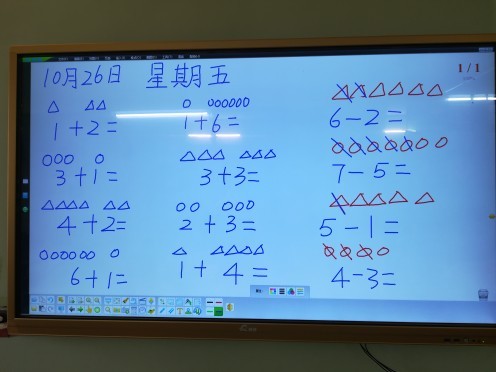 10月26日 星期五
1/1
1+2=
1+6=
6-2=
3+1=
3+3=
7-5=
4+2=
2+3=
5-1=
6+1=
1+4=
4-3=